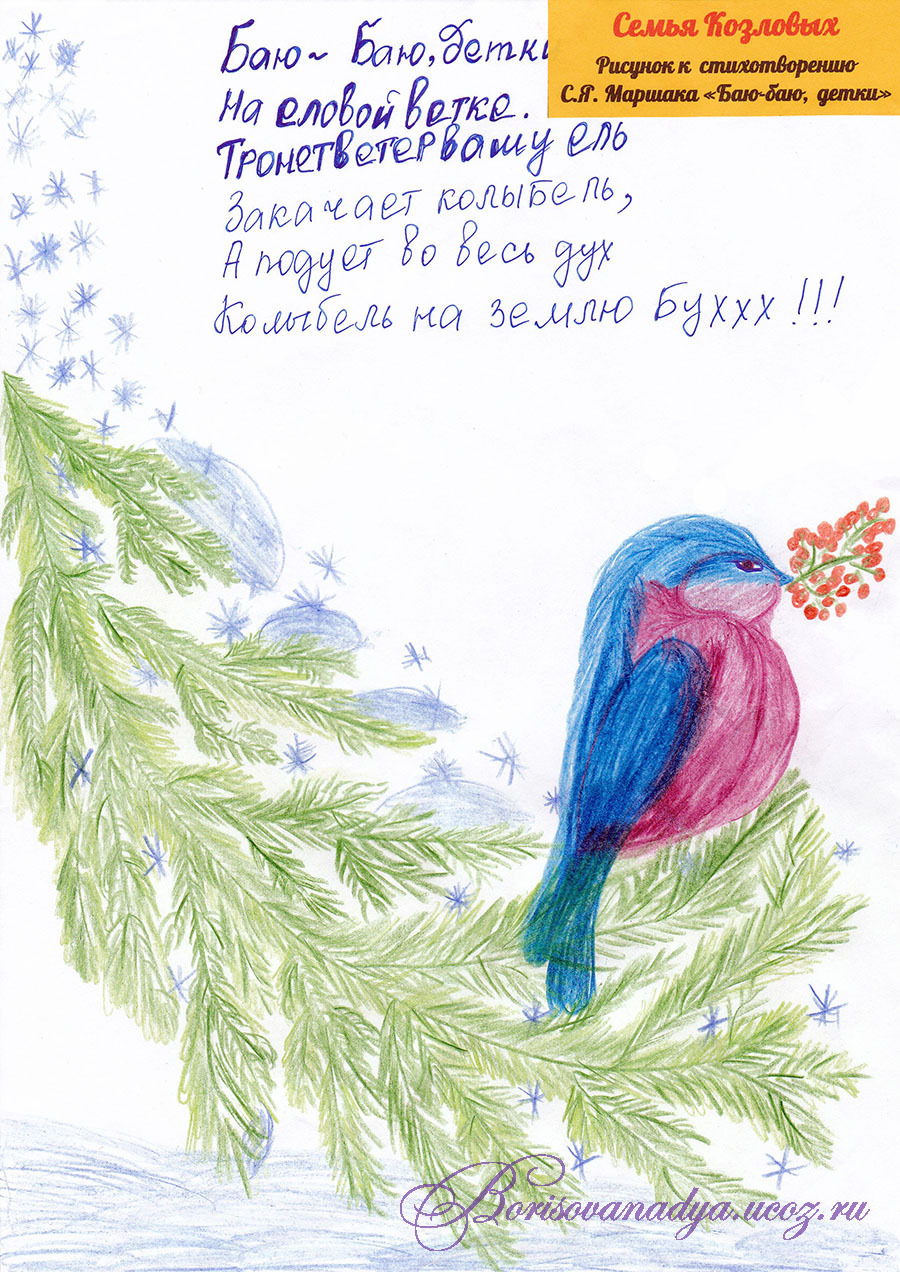 Баю~ Баю, детки
На еловой ветке.
Тронет ветер вашу ель
Закачает колыбель,
А подует во весь дух
Колыбель на землю Буххх!!!
Семья Козловых
Рисунок к стихотворению
С.Я. Маршака «Баю-баю, детки»
Borisovanadya.ucoz.ru